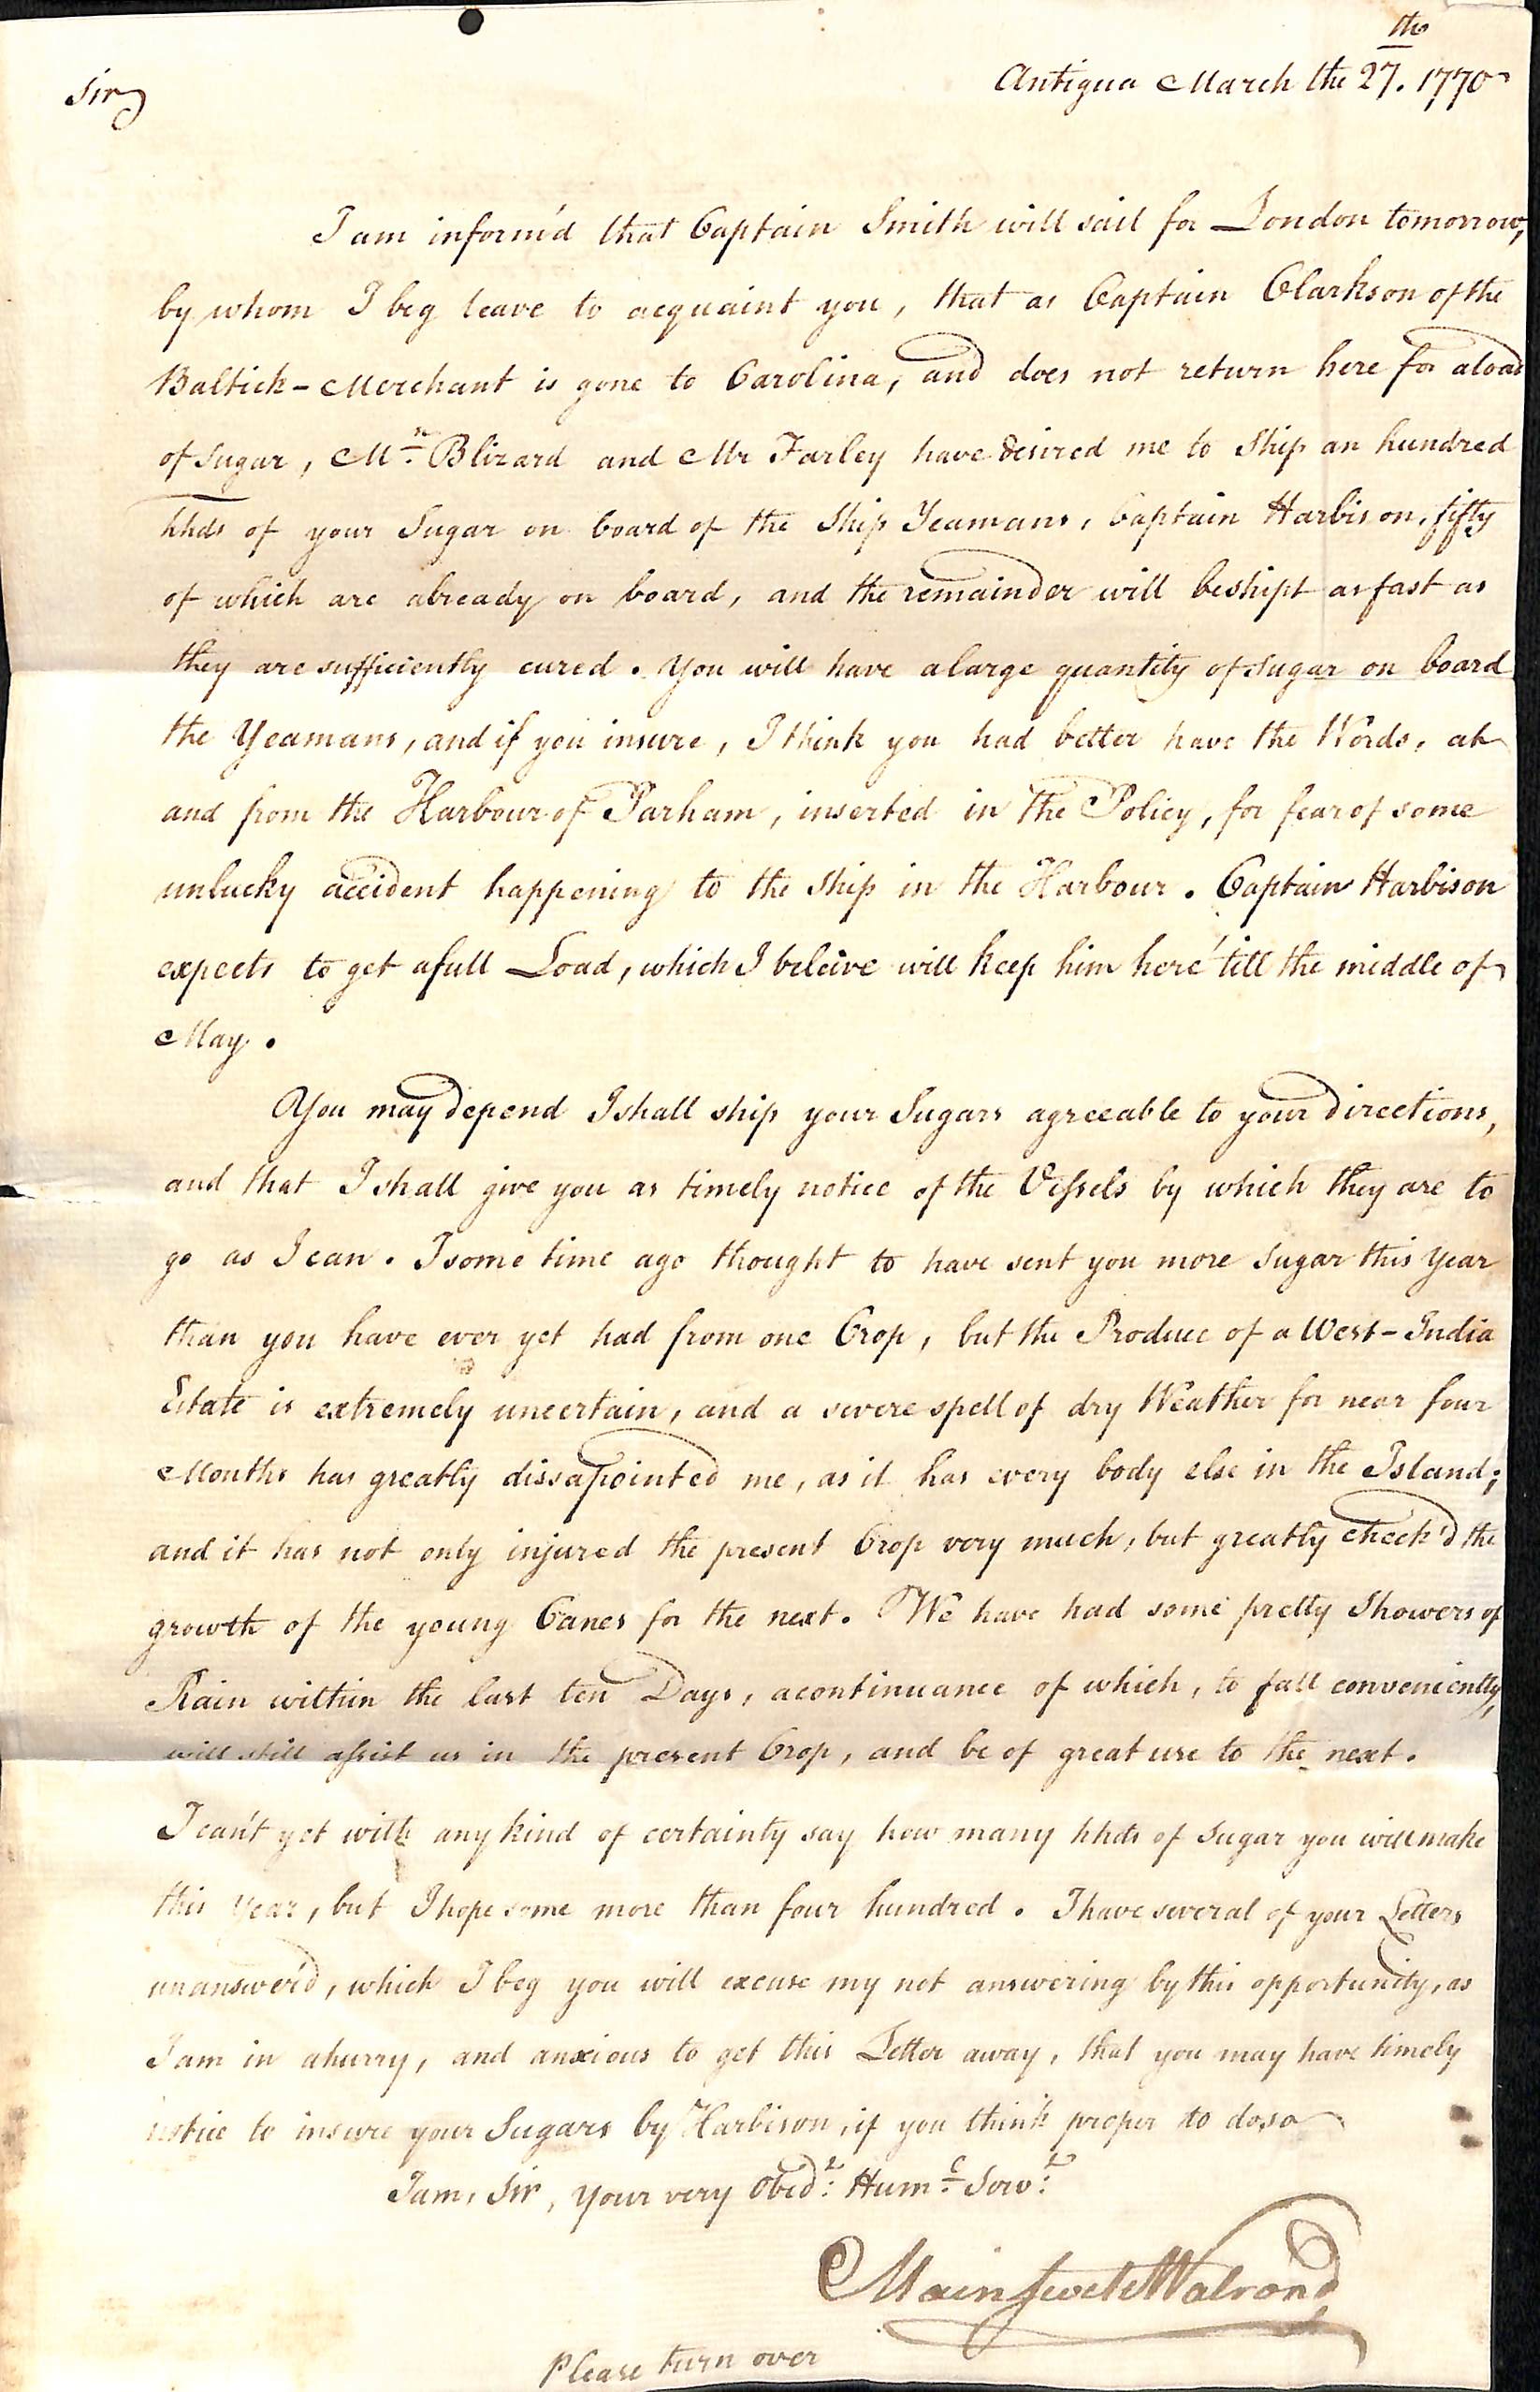 Antigua March the 27.th 1770
Sir
I am inform'd that Captain Smith will sail for London tomorrow,
by whom I beg leave to acquaint you, that as Captain Clarkson of the
Baltick-Merchant is gone to Carolina, and does not return here for a load
of Sugar, Mr. Blizard and Mr Farley have desired me to Ship an hundred
hhds of your Sugar on board of the Ship Yeamans, Captain Harbison, fifty
of which are already on board, and the remainder will be shipt as fast as
they are sufficiently cured. You will have a large quantity of Sugar on board
the Yeamans, and if you insure, I think you had better have the Words, at
and from the Harbour of Parham, inserted in the Policy, for fear of some
unlucky accident happening to the Ship in the Harbour. Captain Harbison
expects to get a full Load, which I beleive will keep him here 'till the middle of
May.
You may depend I shall ship your Sugars agreeable to your directions,
and that I shall give you as timely notice of the Vessels by which they are to
go as I can. I some time ago thought to have sent you more Sugar this Year
than you have ever yet had from one Crop, but the Produce of a West-India
Estate is extremely uncertain, and a severe spell of dry Weather for near four
Months has greatly dissapointed me, as it has every body else in the Island;
and it has not only injured the present Crop very much, but greatly check'd the
growth of the young Canes for the next. We have had some pretty Showers of
Rain within the last ten Days, a continuance of which, to fall conveniently,
will still assist us in the present Crop, and be of great use to the next.
I can't yet with any kind of certainty say how many hhds of Sugar you will make
this Year, but I hope some more than four hundred. I have several of your Letters
unanswer'd, which I beg you will excuse my not answering by this opportunity, as
I am in a hurry, and anxious to get this Letter away, that you may have timely
notice to insure your Sugars by Harbison, if you think proper to do so
I am, Sir, Your very Obedt. Hume. Servt.
Main Swete Walrond
Please turn over